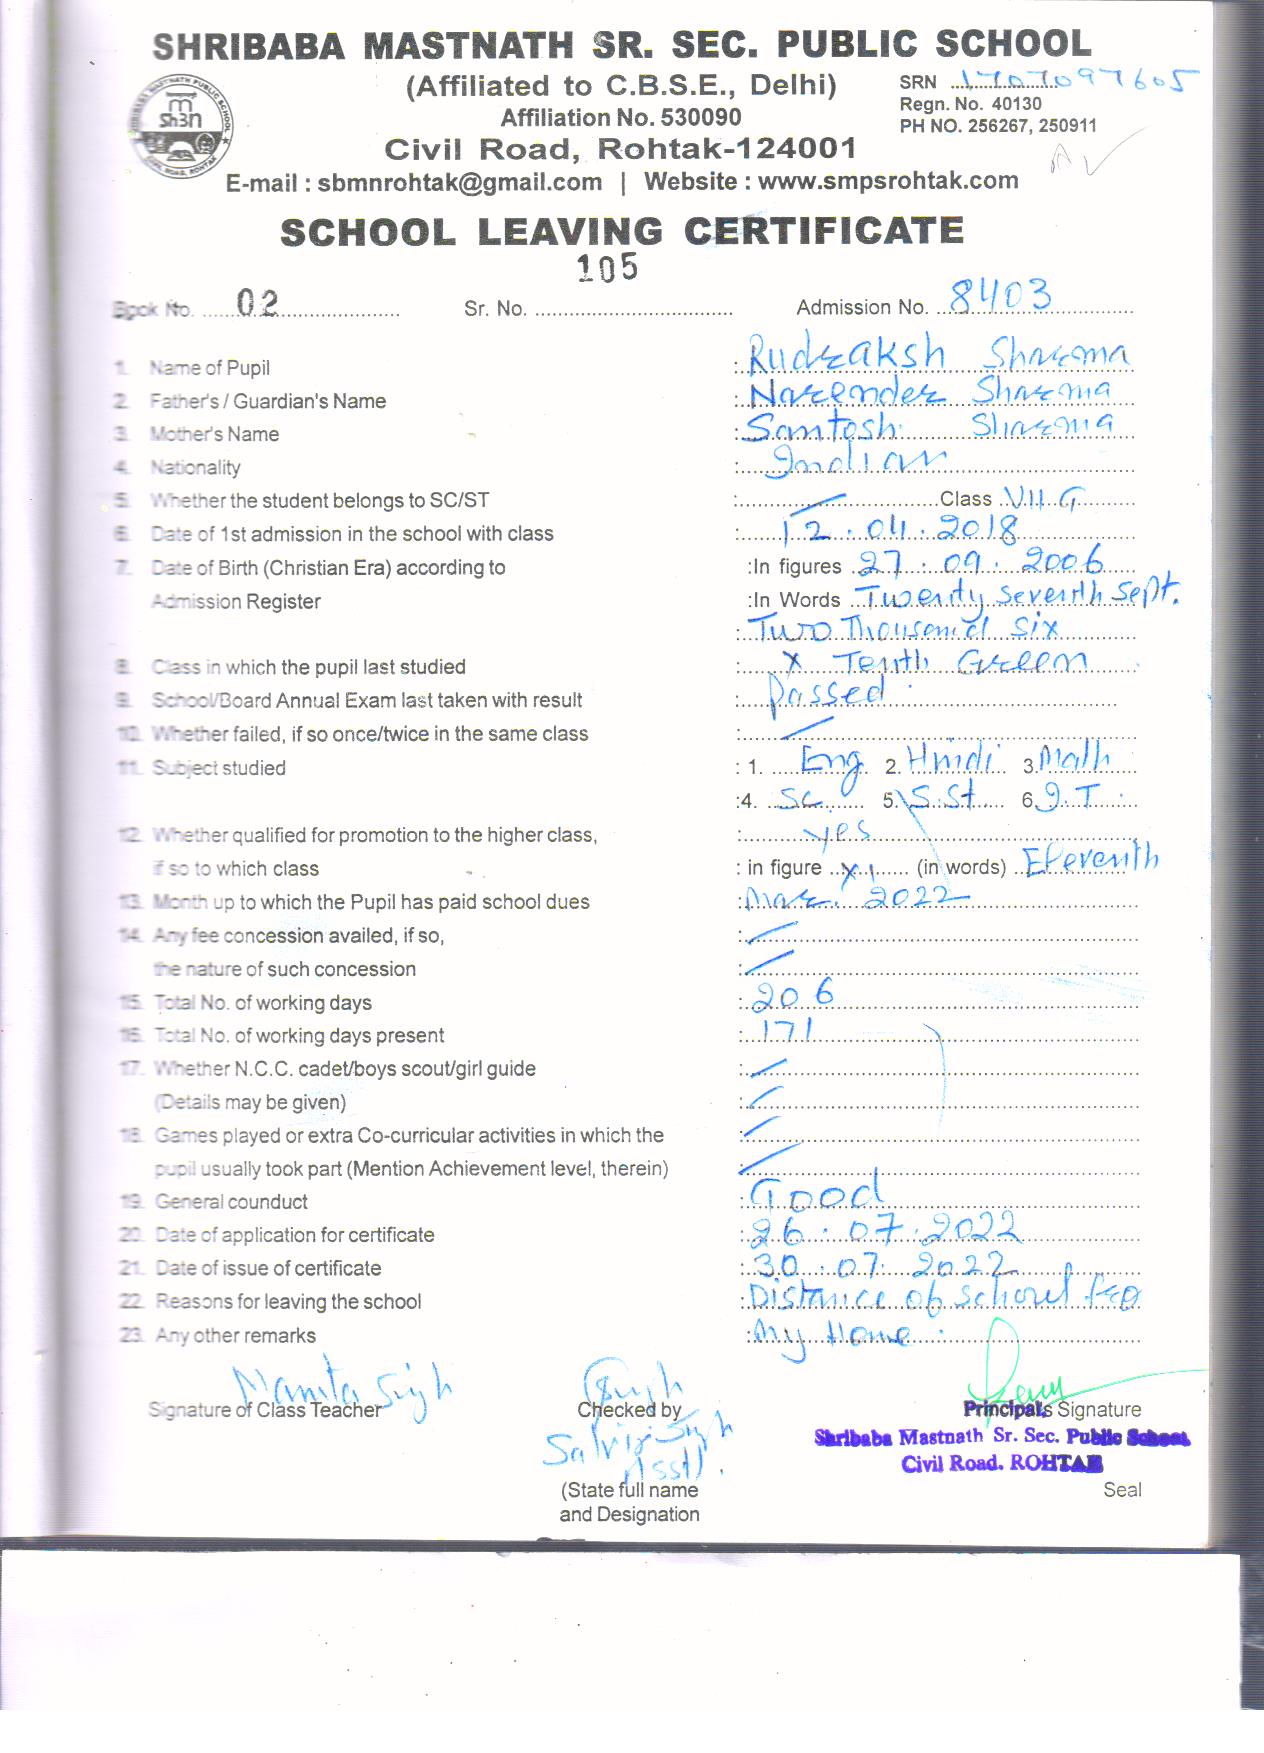 SHRIBABA MASTNATH SR. SEC. PUBLIC SCHOOL
(Affiliated to C.B.S.E., Delhi) SRN 1707097605
Affiliation No. 530090 Regn. No. 40130
PH NO. 256267, 250911
Civil Road, Rohtak-124001
E-mail : sbmnrohtak@gmail.com | Website : www.smpsrohtak.com
SCHOOL LEAVING CERTIFICATE
105
Book No. 02 Sr. No. Admission No. 8403
1. Name of Pupil : Rudraksh Sharma
2. Father's / Guardian's Name : Narender Sharma
3. Mother's Name : Santosh Sharma
4. Nationality : Indian
5. Whether the student belongs to SC/ST : Class VII G
6. Date of 1st admission in the school with class : 12.04.2018
7. Date of Birth (Christian Era) according to :In figures 27.09.2006
Admission Register :In Words Twenty Seventh Sept.
: Two Thousand Six
8. Class in which the pupil last studied : X Tenth Green
9. School/Board Annual Exam last taken with result : Passed
10. Whether failed, if so once/twice in the same class :
11. Subject studied : 1. Eng 2. Hindi 3. Math
:4. SC 5. S.St 6. I.T
12. Whether qualified for promotion to the higher class, : yes
if so to which class : in figure XI (in words) Eleventh
13. Month up to which the Pupil has paid school dues : Mar. 2022
14. Any fee concession availed, if so, :
the nature of such concession :
15. Total No. of working days : 206
16. Total No. of working days present : 171
17. Whether N.C.C. cadet/boys scout/girl guide :
(Details may be given) :
18. Games played or extra Co-curricular activities in which the :
pupil usually took part (Mention Achievement level, therein) :
19. General counduct : Good
20. Date of application for certificate : 26.07.2022
21. Date of issue of certificate : 30.07.2022
22. Reasons for leaving the school : Distance of school
23. Any other remarks : My Home.
Manita Singh
Signature of Class Teacher Checked by Principal's Signature
Shribaba Mastnath Sr. Sec. Public School
Civil Road, ROHTAK
(State full name Seal
and Designation